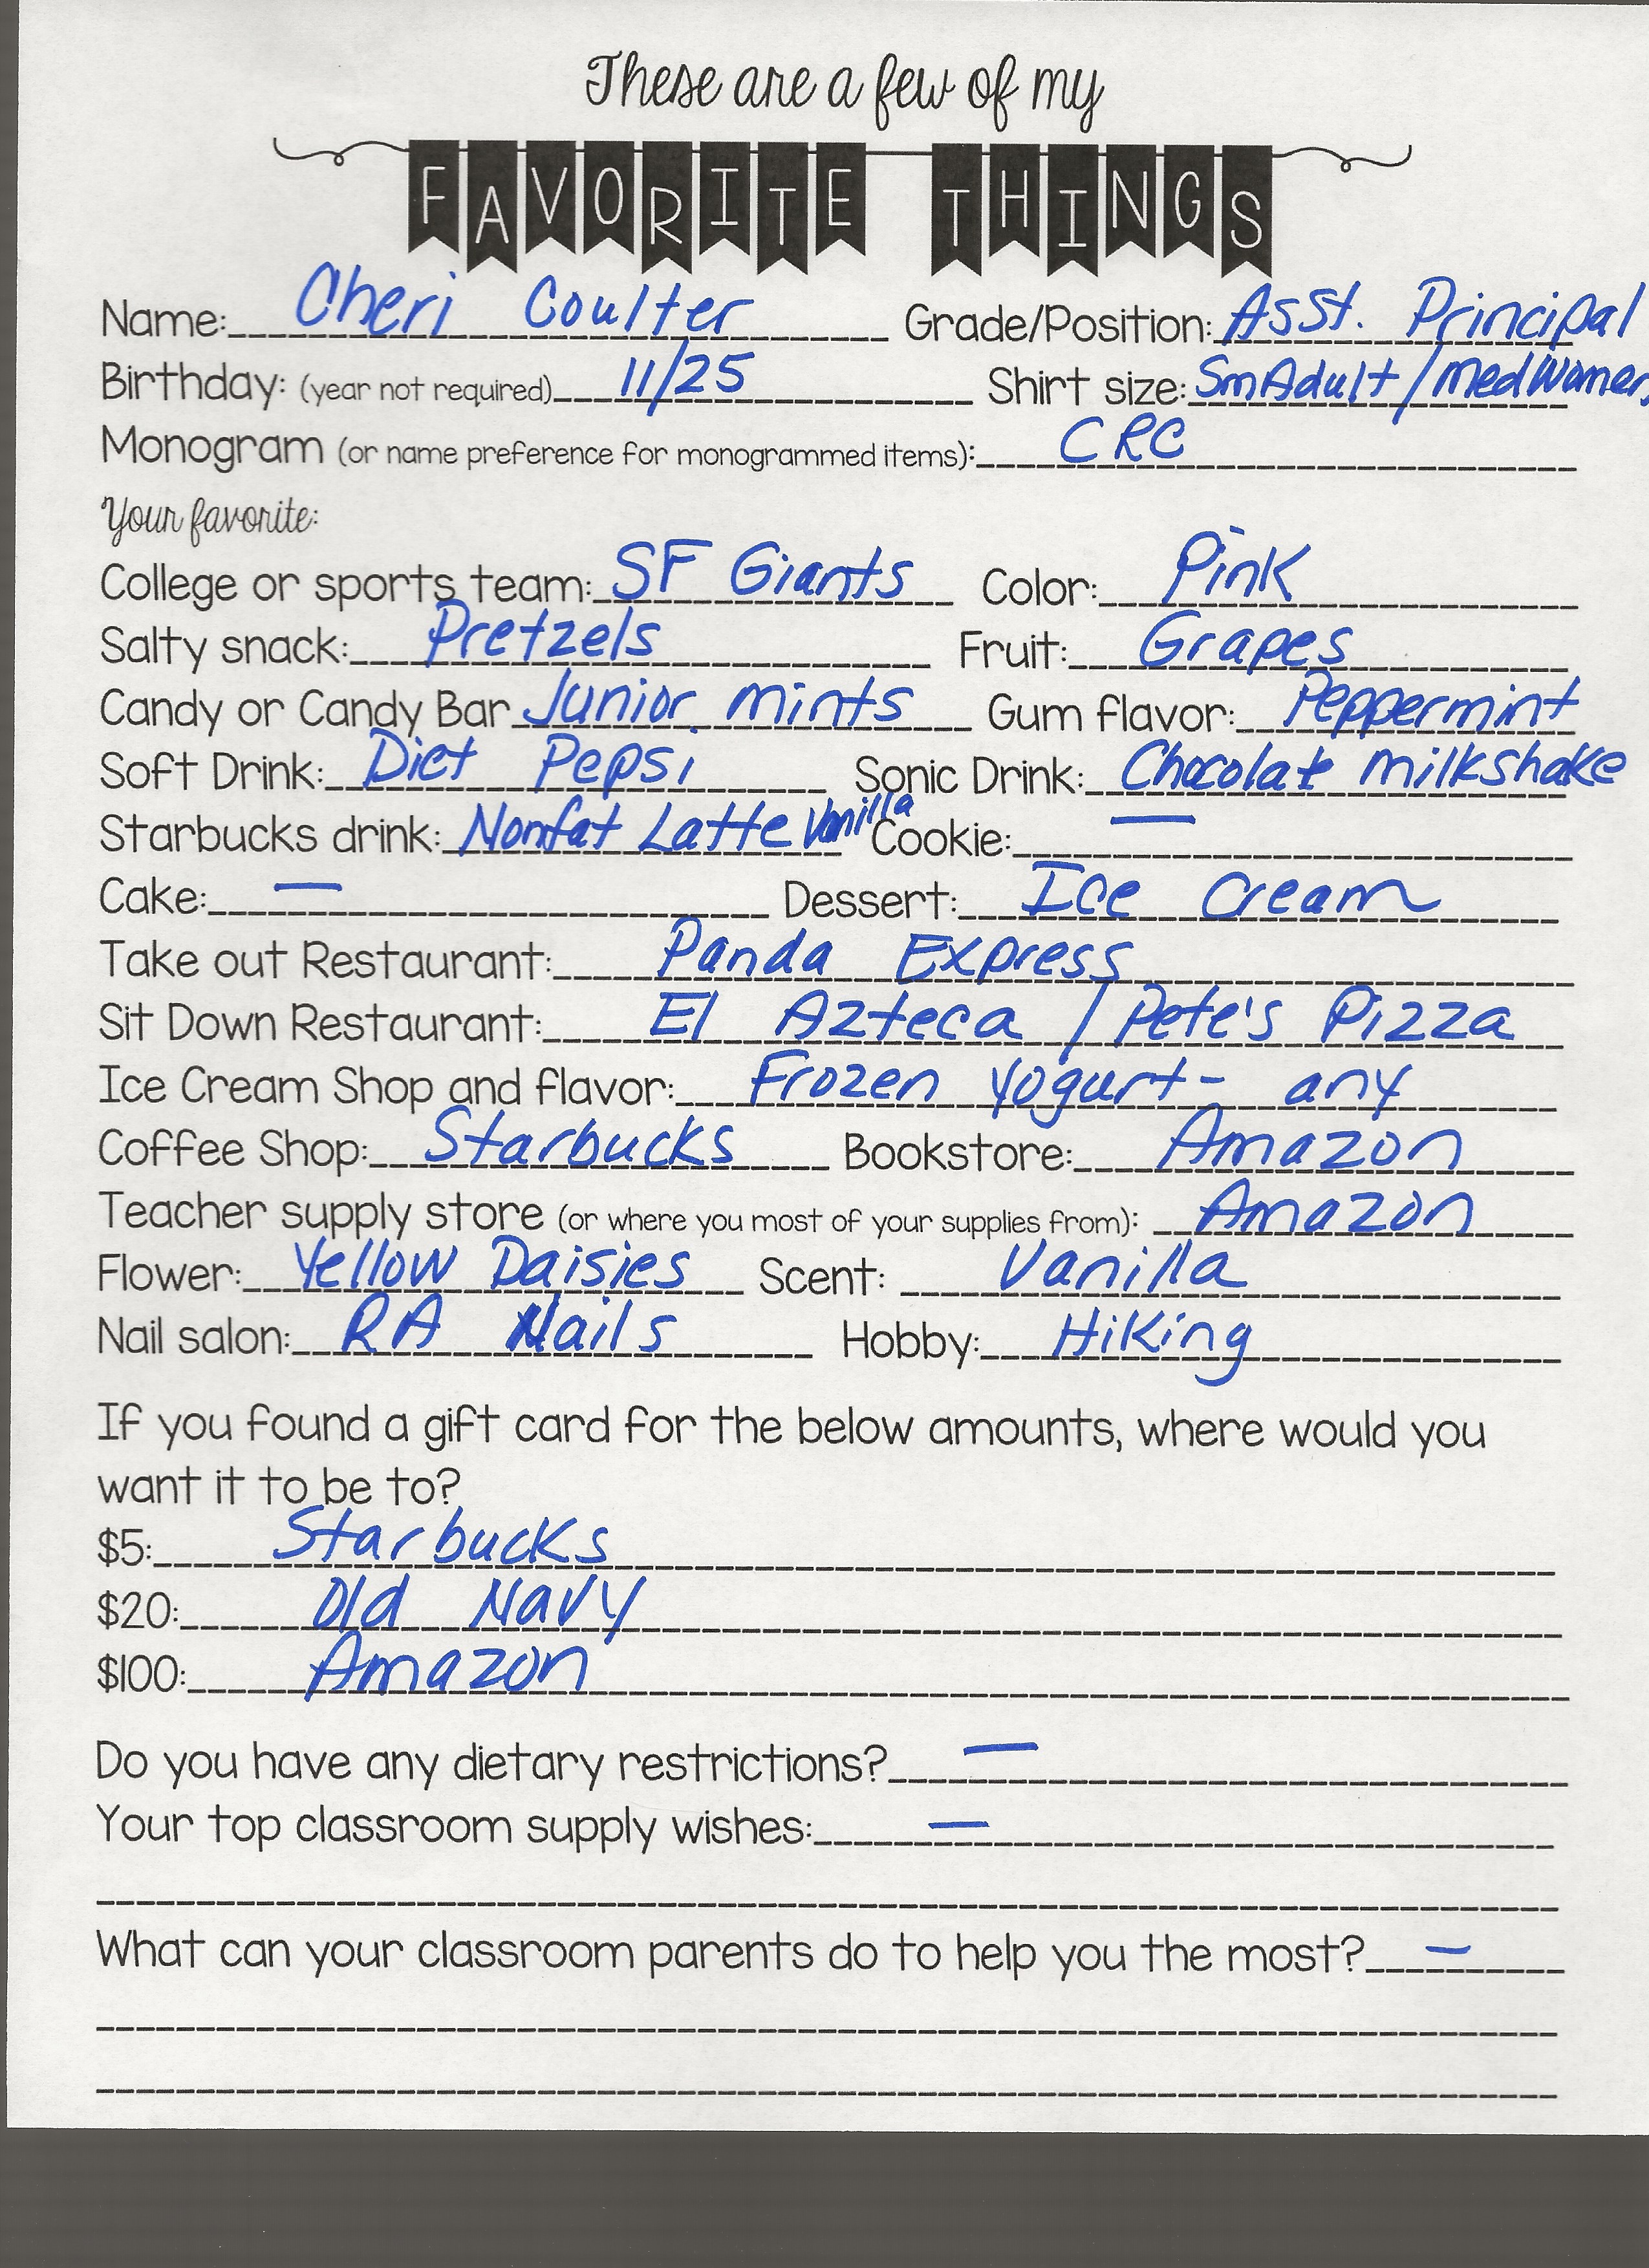 These are a few of my
FAVORITE THINGS
Name: Cheri Coulter Grade/Position: Asst. Principal
Birthday: (year not required) 11/25 Shirt size: Sm Adult / Med Women
Monogram (or name preference for monogrammed items): CRC
Your favorite:
College or sports team: SF Giants Color: Pink
Salty snack: Pretzels Fruit: Grapes
Candy or Candy Bar Junior mints Gum flavor: Peppermint
Soft Drink: Diet Pepsi Sonic Drink: Chocolate milkshake
Starbucks drink: Nonfat Latte Vanilla Cookie: —
Cake: — Dessert: Ice Cream
Take out Restaurant: Panda Express
Sit Down Restaurant: El Azteca / Pete's Pizza
Ice Cream Shop and flavor: Frozen Yogurt - any
Coffee Shop: Starbucks Bookstore: Amazon
Teacher supply store (or where you most of your supplies from): Amazon
Flower: Yellow Daisies Scent: Vanilla
Nail salon: RA Nails Hobby: Hiking
If you found a gift card for the below amounts, where would you
want it to be to?
$5: Starbucks
$20: Old Navy
$100: Amazon
Do you have any dietary restrictions? —
Your top classroom supply wishes: —
What can your classroom parents do to help you the most? —